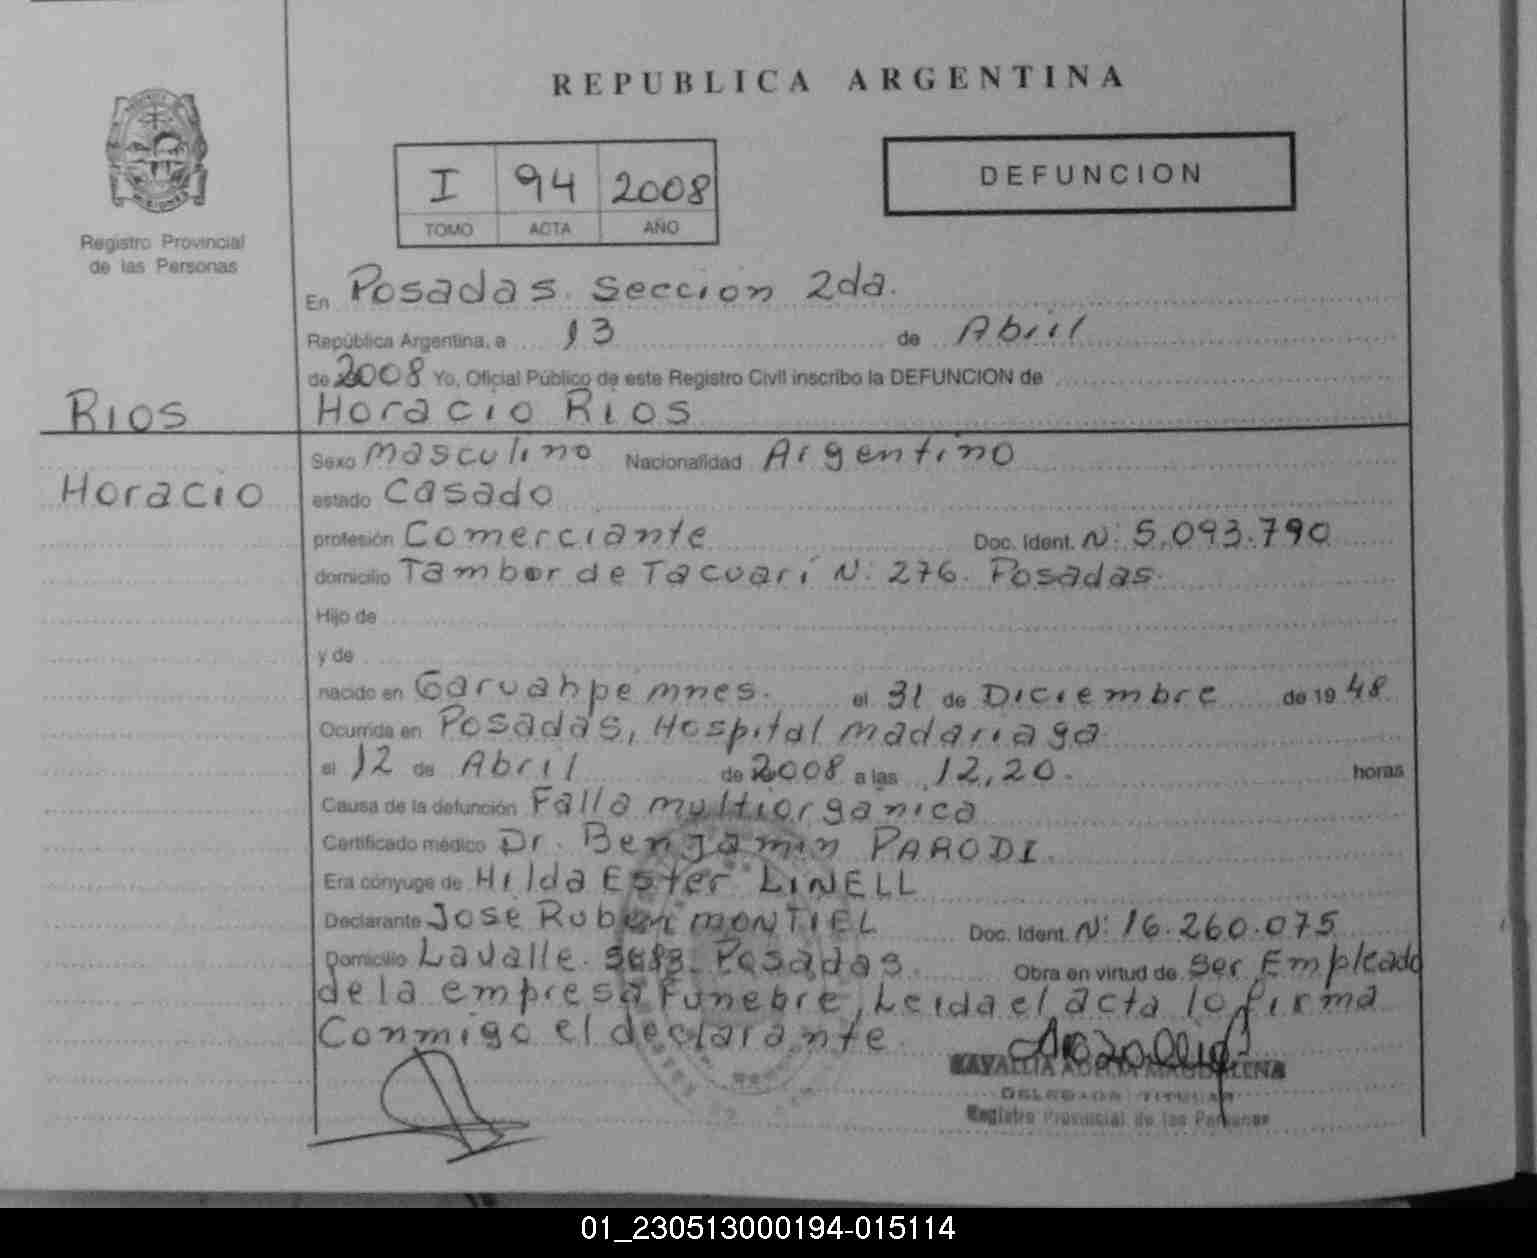 REPUBLICA ARGENTINA
I 94 2008
TOMO ACTA AÑO
DEFUNCION
Registro Provincial
de las Personas
En Posadas. Seccion 2da.
República Argentina, a 13 de Abril
de 2008 Yo, Oficial Público de este Registro Civil inscribo la DEFUNCION de
Rios
Horacio Rios
Horacio
Sexo masculino Nacionalidad Argentino
estado Casado
profesión Comerciante Doc. Ident. N: 5.093.790
domicilio Tambor de Tacuarí N: 276. Posadas.
Hijo de
y de
nacido en Garuahpe mnes. el 31 de Diciembre de 19 48
Ocurrida en Posadas, Hospital madariaga.
el 12 de Abril de 2008 a las 12,20. horas
Causa de la defunción Falla multiorganica
Certificado médico Dr. Benjamin PARODI.
Era cónyuge de Hilda Ester LINELL
Declarante José Ruben MONTIEL Doc. Ident. N: 16.260.075
Domicilio Lavalle. Posadas. Obra en virtud de ser Empleado
de la empresa Funebre, Leida el acta lo firma
Conmigo el declarante.
DELEGADA TITULAR
Registro Provincial de las Personas
01_230513000194-015114